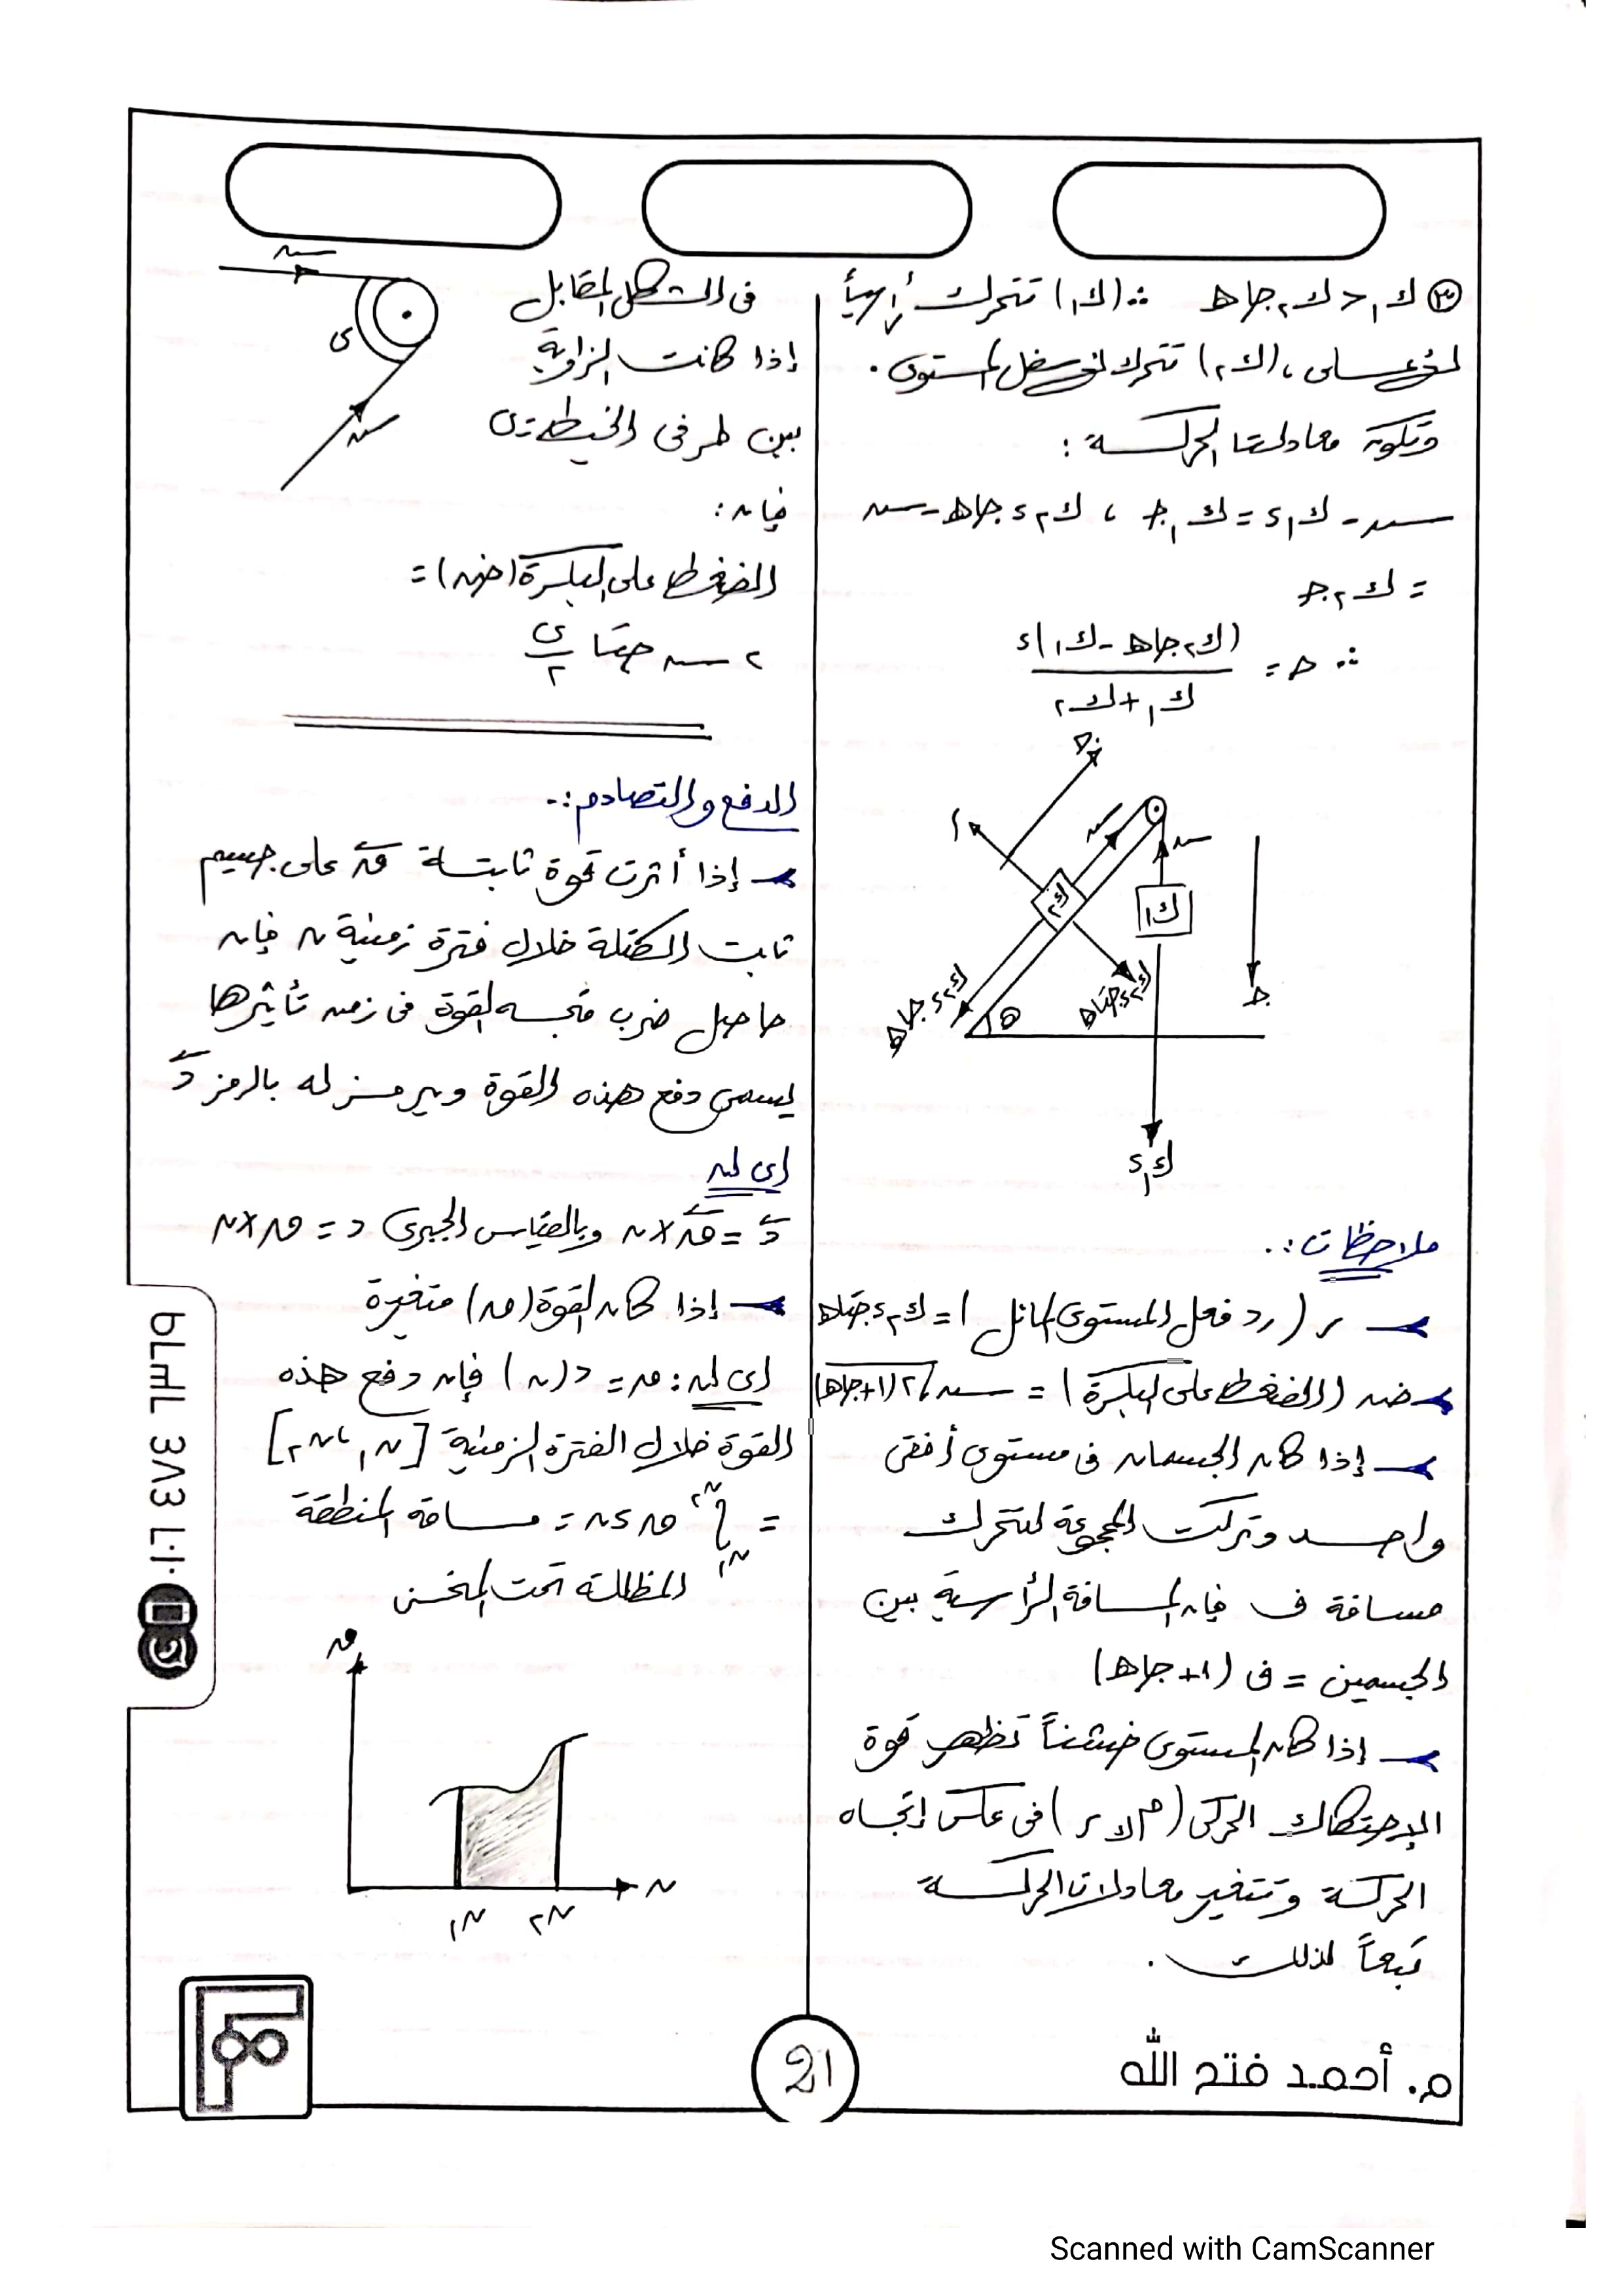 ③ ك₁ < ك₂ جاهـ ∴ (ك₁) تتحرك رأسياً
لأعلى ، (ك₂) تتحرك لأسفل المستوى .
وتكون معادلتا الحركة :
سـ - ك₁ء = ك₁جـ ، ك₂ء جاهـ - سـ
= ك₂جـ
∴ جـ = (ك₂جاهـ - ك₁)ء / ك₁ + ك₂
جـ
ر
سـ
سـ
ك₂
ك₁
ك₂ء جاهـ
هـ
ك₂ء جتاهـ
جـ
ك₁ء
ملاحظات :.
ر (رد فعل المستوى المائل) = ك₂ء جتاهـ
ضـ (الضغط على البكرة) = سـ √٢(١+جاهـ)
إذا كان الجسمان فى مستوى أفقى
واحد وتركت المجموعة لتتحرك
مسافة ف فإن المسافة الرأسية بين
الجسمين = ف (١+جاهـ)
إذا كان المستوى خشناً تظهر قوة
الإحتكاك الحركى (مك ر) فى عكس إتجاه
الحركة وتتغير معادلات الحركة
تبعاً لذلك .
فى الشكل المقابل
إذا كانت الزاوية
بين طرفى الخيط = ى
فإن :
الضغط على البكرة (ضـ) =
٢ سـ جتا ى/٢
سـ
ى
سـ
الدفع والتصادم :-
إذا أثرت قوة ثابتة ق على جسيم
ثابت الكتلة خلال فترة زمنية ن فإن
حاصل ضرب متجه القوة فى زمن تأثيرها
يسمى دفع هذه القوة ويرمز له بالرمز د
اى أن
د = ق × ن وبالقياس الجبرى د = ق × ن
إذا كان القوة (ق) متغيرة
اى أن : ق = د(ن) فإن دفع هذه
القوة خلال الفترة الزمنية [ن₁ ، ن₂]
= ∫ ن₁ ن₂ ق ء ن = مساحة المنطقة
المظللة تحت المنحنى
ق
ن
ن₁ ن₂
٠١٠١ ٤٨٤ ٦٤٦٩
21
م. أحمد فتح الله
Scanned with CamScanner